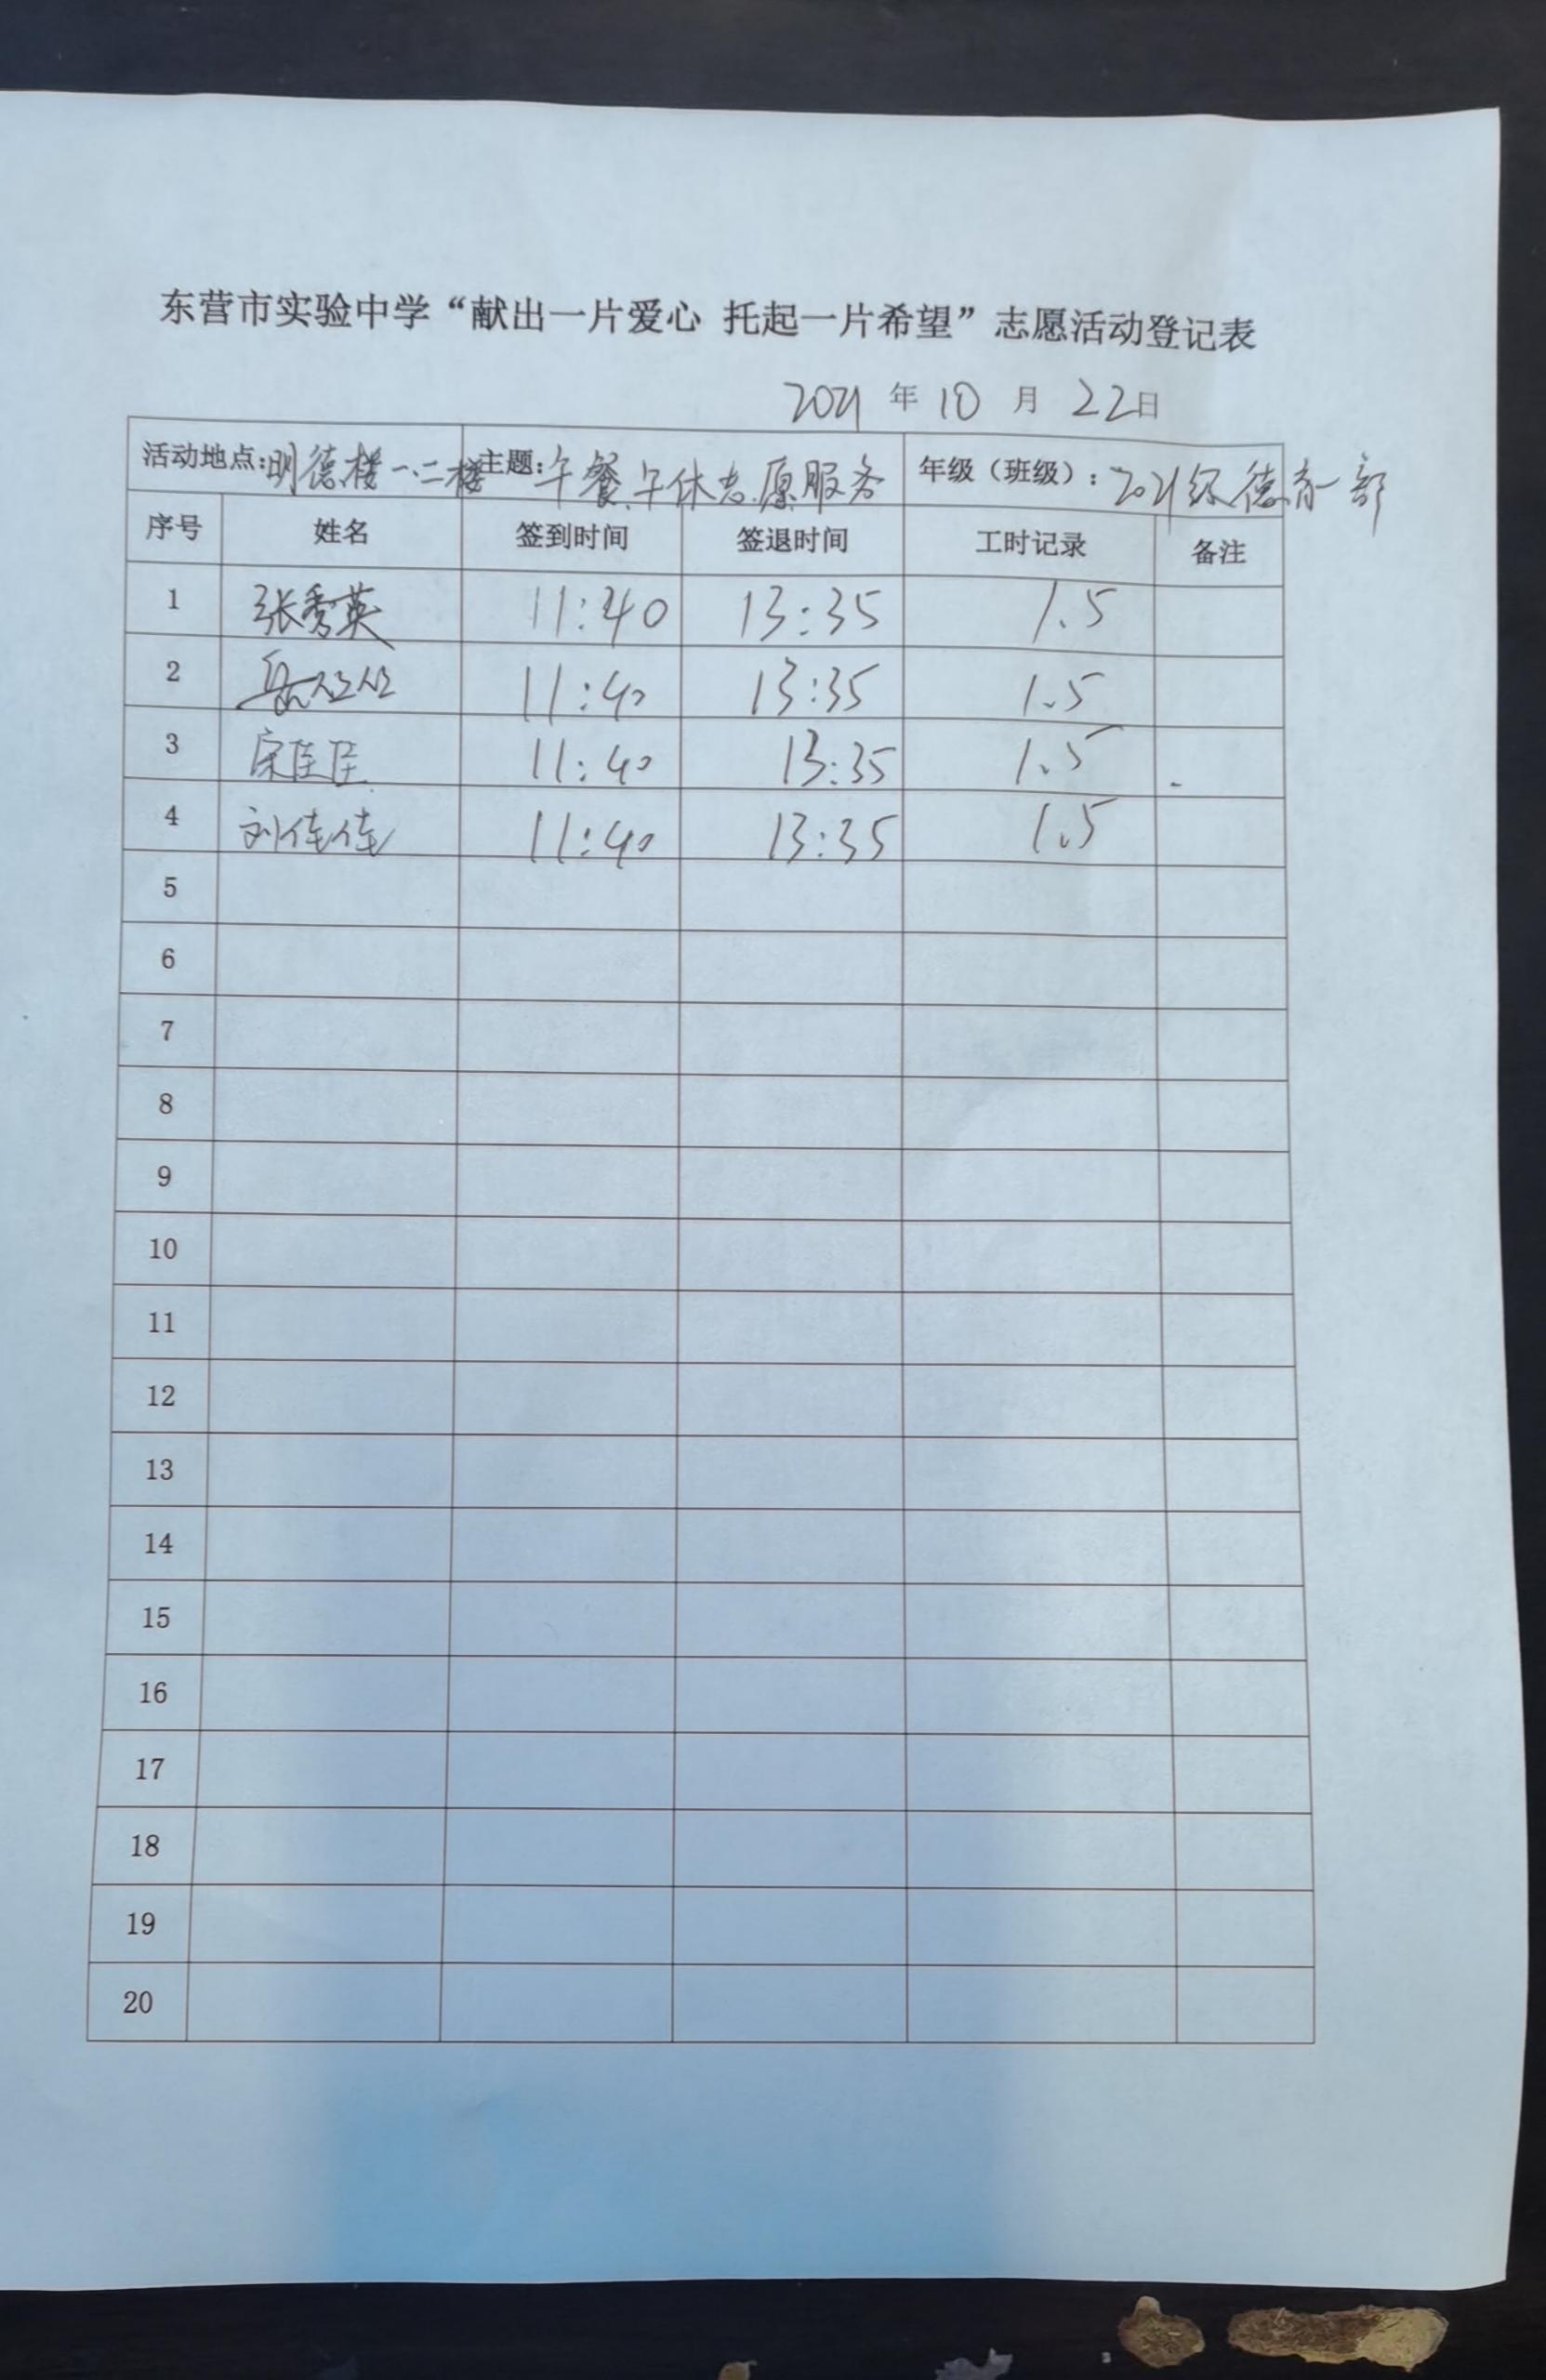 东营市实验中学“献出一片爱心 托起一片希望”志愿活动登记表
2021 年 10 月 22日
活动地点:明德楼一、二楼 主题:午餐、午休志愿服务 年级（班级）: 2021级德育一部
序号 姓名 签到时间 签退时间 工时记录 备注
1 张秀英 11:40 13:35 1.5
2 11:40 13:35 1.5
3 宋佳佳 11:40 13:35 1.5
4 刘佳佳 11:40 13:35 1.5
5
6
7
8
9
10
11
12
13
14
15
16
17
18
19
20